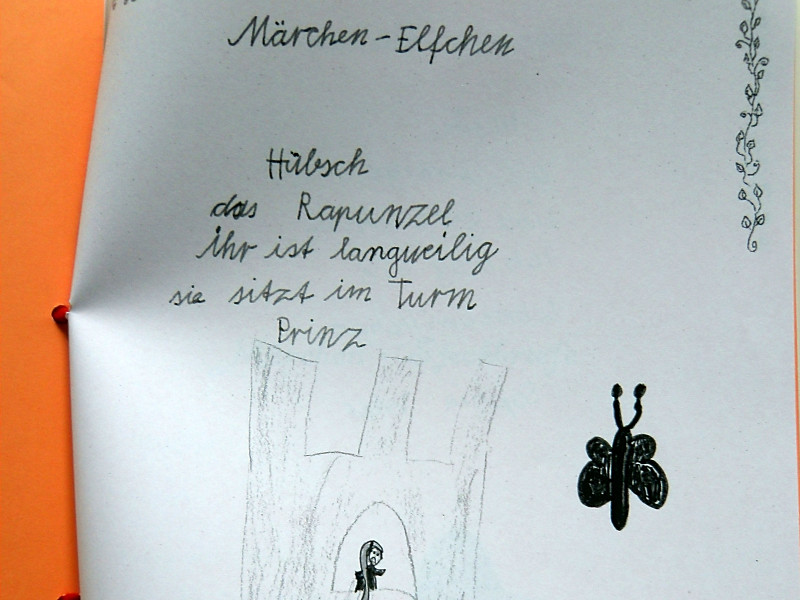 Märchen-Elfchen
Hübsch
das Rapunzel
Ihr ist langweilig
sie sitzt im Turm
Prinz